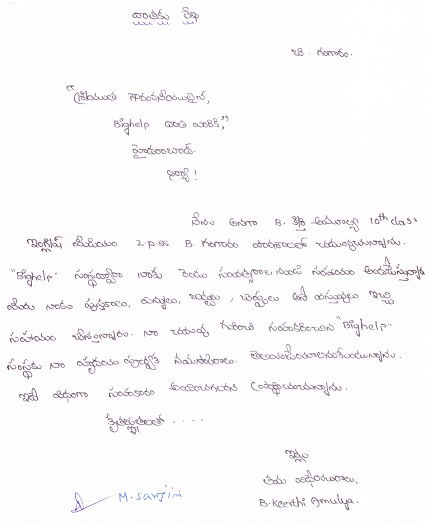 దాతకు లేఖ
బి. గంగారం.
"శ్రీయుత గౌరవనీయులైన,
Bighelp దాత గారికి,"
హైదరాబాద్.
ఆర్యా!
నేను అనగా B. కీర్తి అమూల్య 10th class
ఇంగ్లీష్ మీడియం Z.P.SS B. గంగారం పాఠశాలలో చదువుచున్నాను.
"Bighelp" సంస్థద్వారా నాకు రెండు సంవత్సరాల నుండి సహాయం అందజేస్తున్నారు
మీరు నాకు పుస్తకాలు, పెన్నులు, బట్టలు, చెప్పులు అనే వస్తువులు ఇచ్చి
సహాయం చేస్తున్నారు. నా చదువు గురించి సహకరించిన "Bighelp"
సంస్థకు నా హృదయ పూర్వక నమస్కారాలు. తెలియజేయాలనుకుంటున్నాను.
ఇదే విధంగా సహకారం అందించగలరని ప్రార్థిస్తున్నాను.
కృతజ్ఞతలతో ....
ఇట్లు
తమ విధేయురాలు.
B. Keerthi Amulya.
M. Sanjini